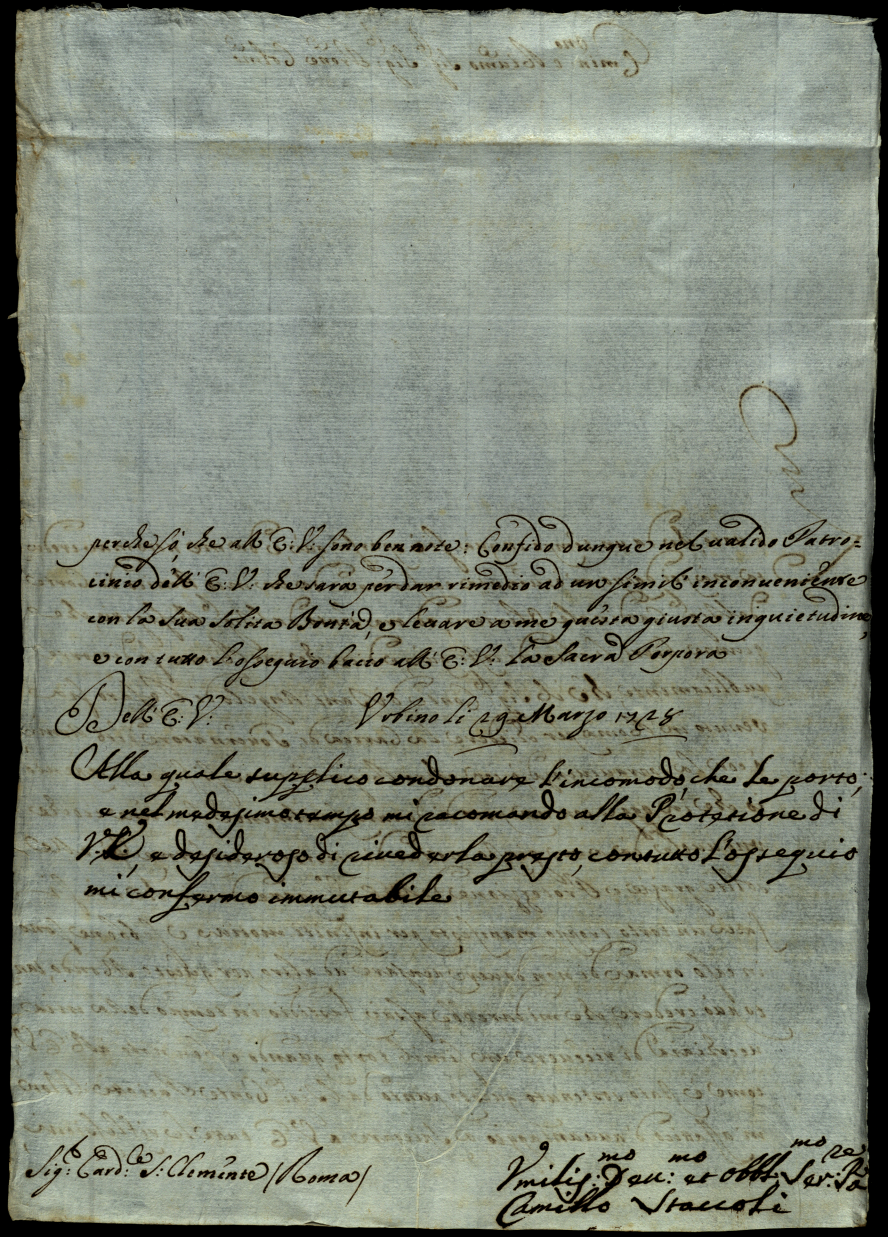 perche sò, che all' E: V: sono ben note: Confido dunque nel valido Patro=
cinio dell' E: V: che sarà per dar rimedio ad un simile inconveniente
con la sua solita Bontà, e levare a me questa giusta inquietudine,
e con tutto l'ossequio bacio all' E: V: la Sacra Porpora
Dell' E: V: Urbino li 29 Marzo 1728
Alla quale supplico condonare l'incomodo, che le porto,
e nel medesimo tempo mi racomando alla Protetione di
V: E, e desideroso di rivederla presto, con tutto l'ossequio
mi confermo immutabile
Sig.r Card.le S: Clemente /Roma/
Vmilis:mo Deu:mo et Obbl:mo Ser:re
Camillo Staccoli